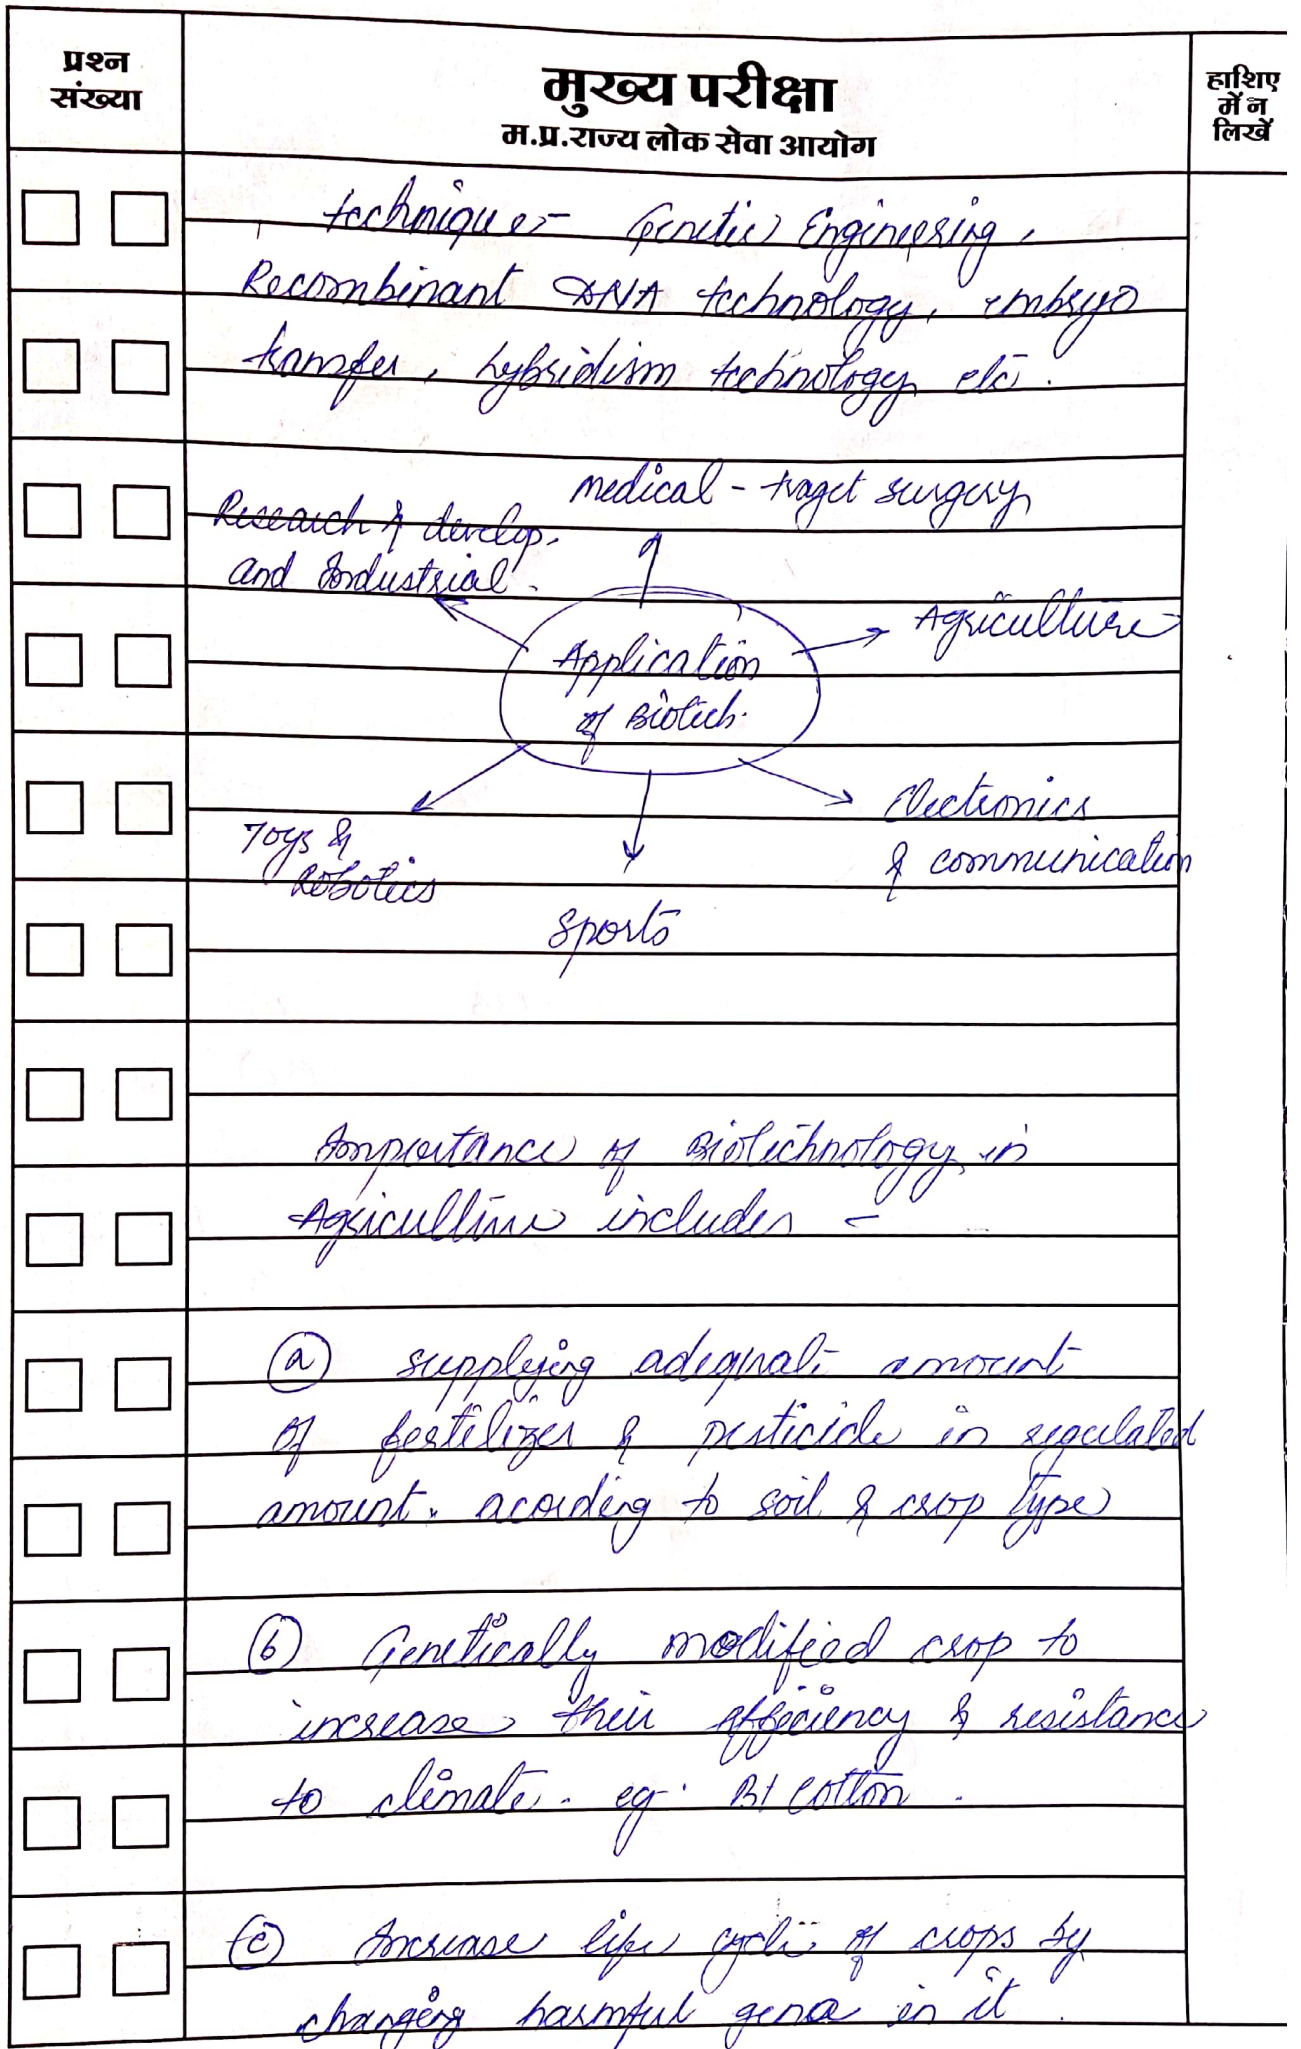 प्रश्न
संख्या
मुख्य परीक्षा
म.प्र.राज्य लोक सेवा आयोग
हाशिए
में न
लिखें
technique:- Genetic Engineering,
Recombinant DNA technology, embryo
transfer, hybridism technology etc.
medical - traget surgery
Research & develop.
and Industrial.
Agriculture
Application
of Biotech.
Electronics
& communication
Toys &
Robotics
Sports
Importance of Biotechnology in
Agriculture includes -
(a) supplying adequate amount
of fertilizer & pesticide in regulated
amount. acording to soil & crop type
(b) Genetically modified crop to
increase their efficiency & resistance
to climate. eg. Bt Cotton.
(c) Increase life cycle of crops by
changing harmful gena in it.